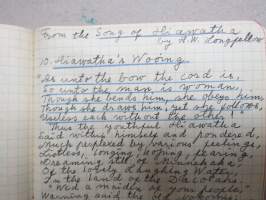 From the Song of Hiawatha
by H.W. Longfellow
10. Hiawatha's Wooing.
"As unto the bow the cord is,
So unto the man is woman,
Though she bends him, she obeys him,
Though she draws him, yet she follows,
Useless each without the other!"
Thus the youthful Hiawatha
Said within himself and pondered,
Much perplexed by various feelings,
Listless, longing, hoping, fearing,
Dreaming still of Minnehaha,
Of the lovely Laughing Water,
In the land of the Dacotahs.
"Wed a maiden of your people,"
Warning said the old Nokomis;